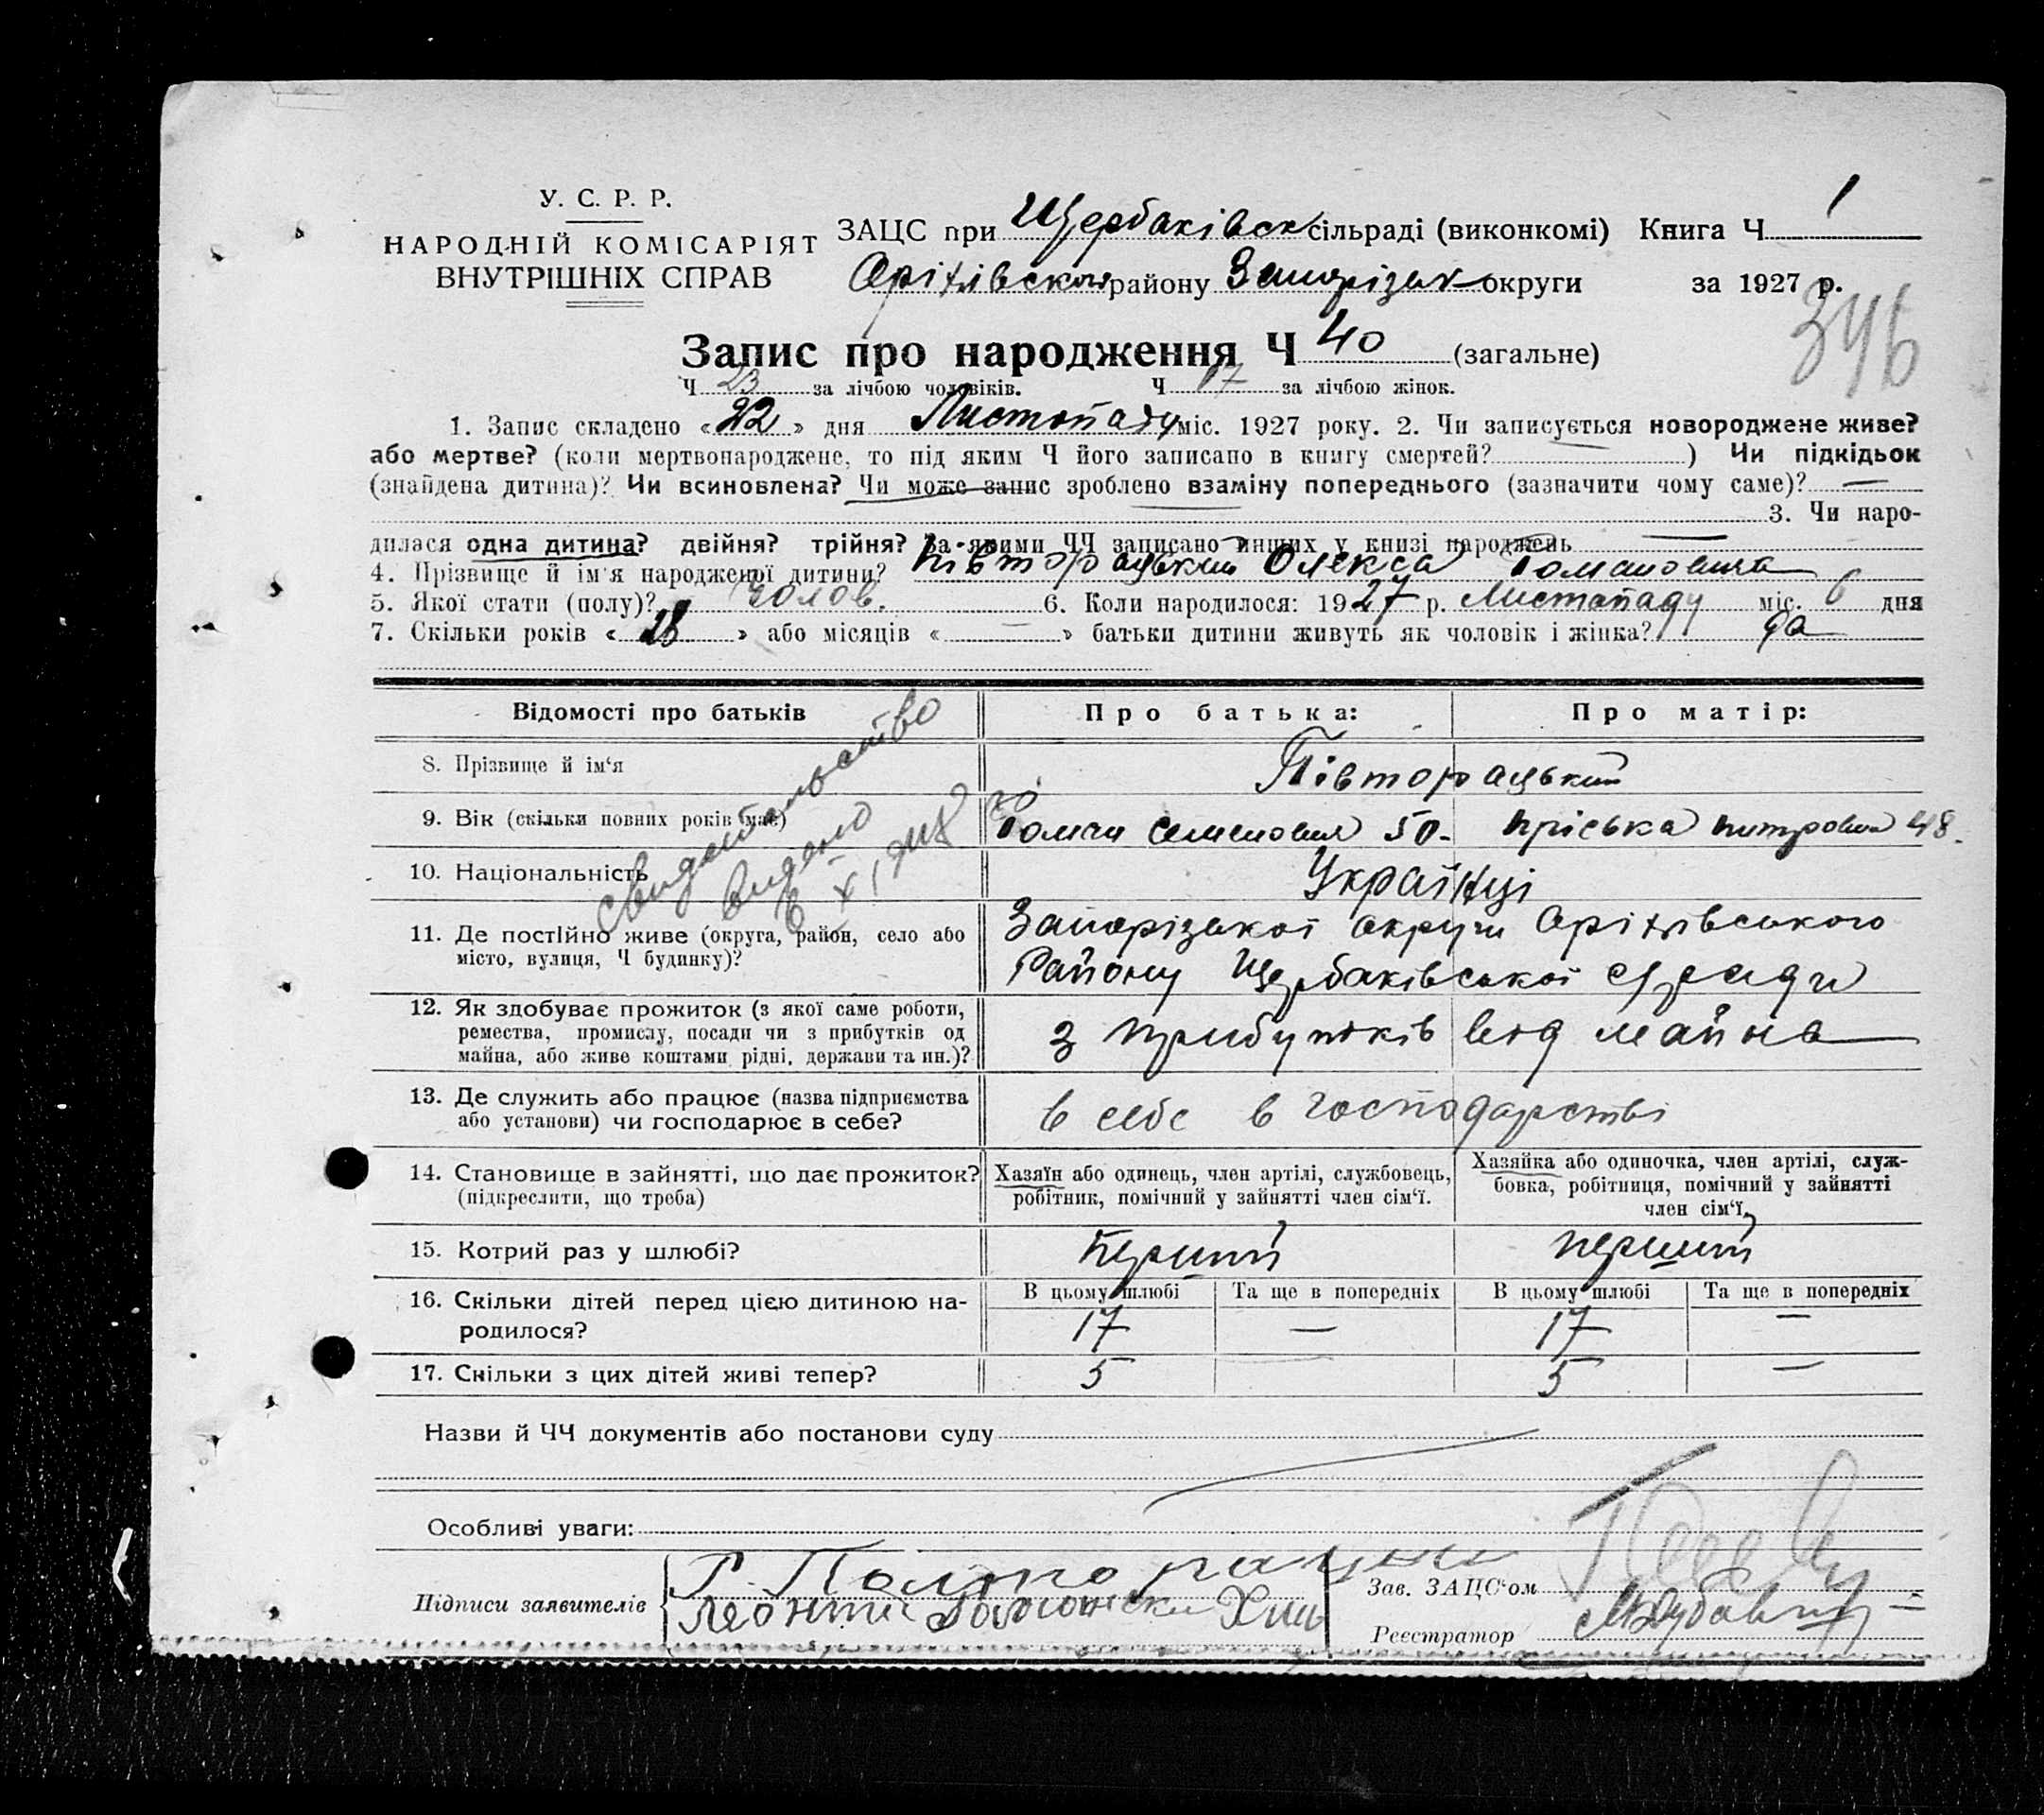 У. С. Р. Р.
НАРОДНІЙ КОМІСАРІЯТ
ВНУТРІШНІХ СПРАВ
ЗАЦС при Щербаківск сільраді (виконкомі) Книга Ч 1
Оріхівского району Запорізьк округи за 1927 р.
346
Запис про народження Ч 40 (загальне)
Ч 23 за лічбою чоловіків. Ч 17 за лічбою жінок.
1. Запис складено «22» дня Листопаду міс. 1927 року. 2. Чи записується новороджене живе?
або мертве? (коли мертвонароджене, то під яким Ч його записано в книгу смертей? ) Чи підкідьок
(знайдена дитина)? Чи всиновлена? Чи може запис зроблено взаміну попереднього (зазначити чому саме)? —
3. Чи наро-
дилася одна дитина? двійня? трійня? За якими ЧЧ записано инших у книзі народжень —
4. Прізвище й ім'я народженої дитини? Півторацький Олекса Романовича
5. Якої стати (полу)? Чолов. 6. Коли народилося: 1927 р. Листопаду міс. 6 дня
7. Скільки років «28» або місяців « — » батьки дитини живуть як чоловік і жінка? да
Відомості про батьків Про батька: Про матір:
8. Прізвище й ім'я Півторацький
9. Вік (скільки повних років має) Роман Семенович 50. Пріська Питровна 48.
10. Національність Українці
свидетельство
видено
6 XI
11. Де постійно живе (округа, район, село або Запорізької округи Оріхівського
місто, вулиця, Ч будинку)? Району Щербаківської с/ради
12. Як здобуває прожиток (з якої саме роботи,
ремества, промислу, посади чи з прибутків од з прибутків від майна
майна, або живе коштами рідні, держави та ин.)?
13. Де служить або працює (назва підприємства
або установи) чи господарює в себе? в себе в господарстві
14. Становище в зайнятті, що дає прожиток? Хазяїн або одинець, член артілі, службовець, Хазяйка або одиночка, член артілі, служ-
(підкреслити, що треба) робітник, помічний у зайнятті член сім'ї. бовка, робітниця, помічний у зайнятті
член сім'ї.
15. Котрий раз у шлюбі? Перший перший
16. Скільки дітей перед цією дитиною на- В цьому шлюбі Та ще в попередніх В цьому шлюбі Та ще в попередніх
родилося? 17 — 17 —
17. Скільки з цих дітей живі тепер? 5 — 5 —
Назви й ЧЧ документів або постанови суду
Особливі уваги:
Підписи заявителів Р. Полторацки
Леонтий
Зав. ЗАЦС'ом
Реєстратор